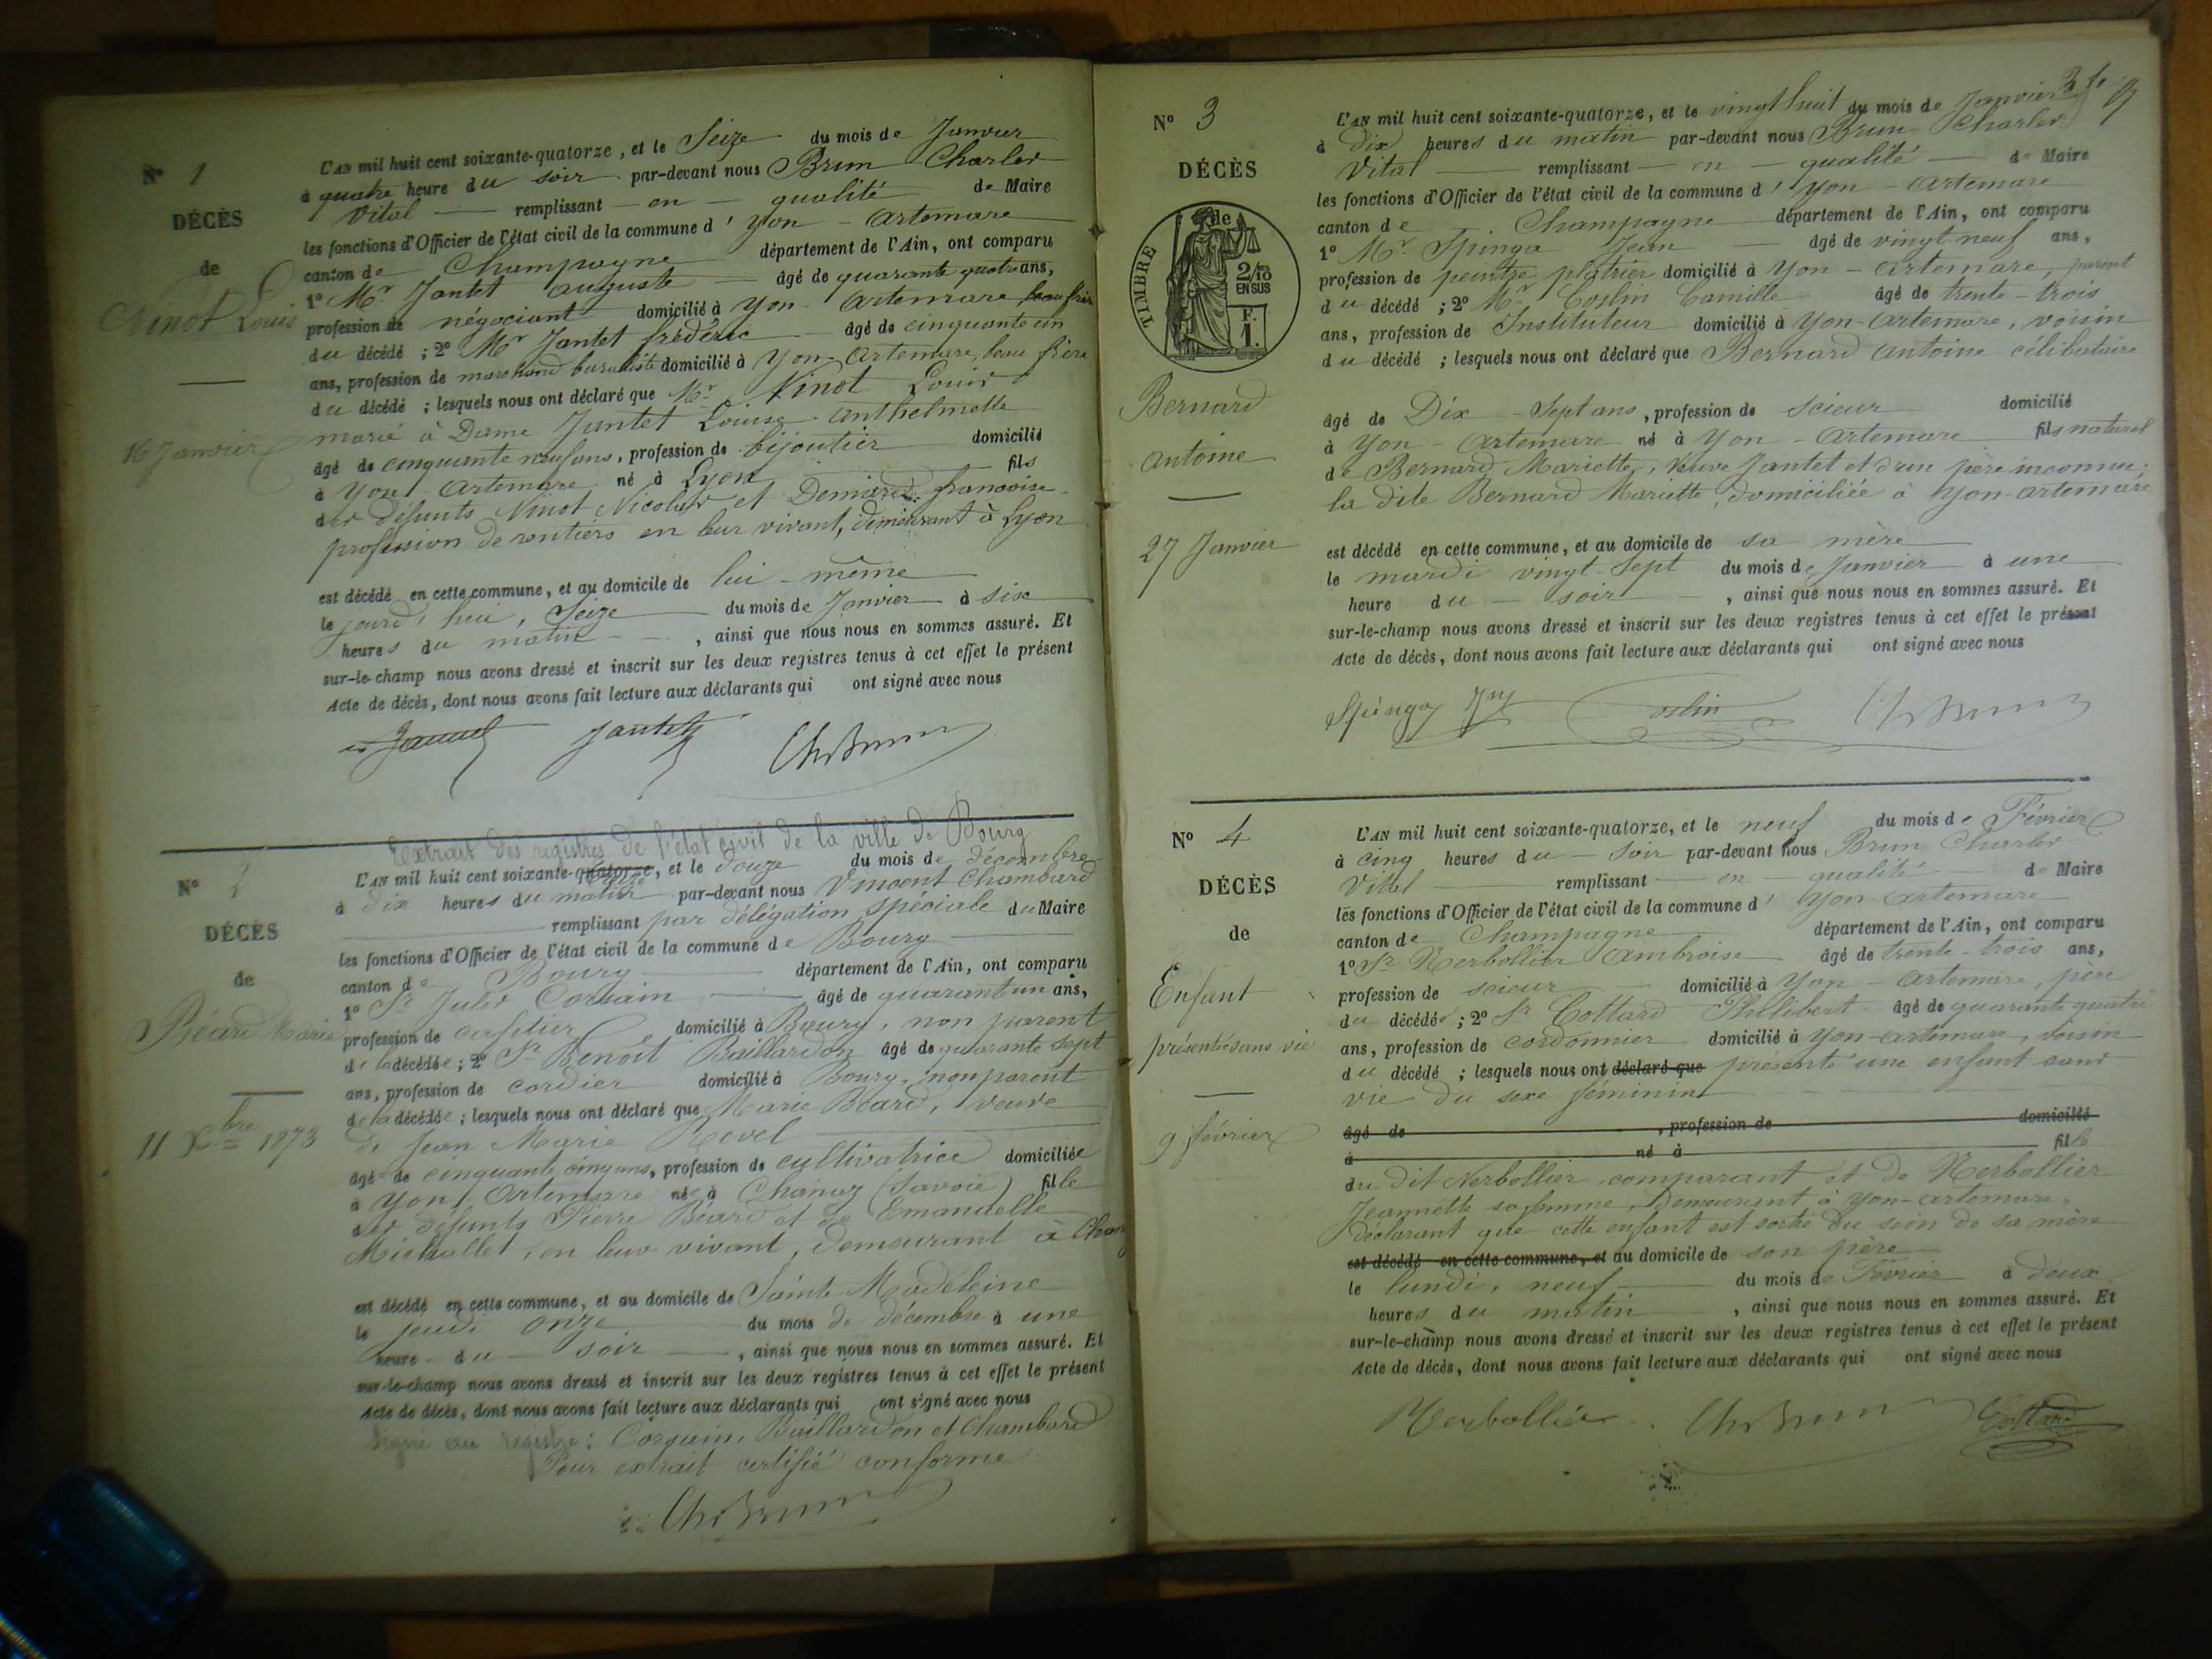 N° 1
DÉCÈS
de
Ninot Louis
16 Janvier
L'AN mil huit cent soixante-quatorze, et le Seize du mois de Janvier
à quatre heure du soir par-devant nous Brun Charles
Vital remplissant en qualité de Maire
les fonctions d'Officier de l'état civil de la commune d'Yon-Artemare
canton de Champagne département de l'Ain, ont comparu
1° Mr Jantet Auguste âgé de quarante quatre ans,
profession de négociant domicilié à Yon-Artemare, beau frère
du décédé ; 2° Mr Jantet frédéric âgé de cinquante un
ans, profession de marchand buraliste domicilié à Yon-Artemare, beau frère
du décédé ; lesquels nous ont déclaré que Mr Ninot Louis
marié à Dame Jantet Louise Anthelmette
âgé de cinquante neuf ans, profession de bijoutier domicilié
à Yon-Artemare né à Lyon fils
des défunts Ninot Nicolas et françoise
profession de rentiers en leur vivant, demeurant à Lyon
est décédé en cette commune, et au domicile de lui-même
le jourd'hui, Seize du mois de Janvier à six
heures du matin, ainsi que nous nous en sommes assuré. Et
sur-le-champ nous avons dressé et inscrit sur les deux registres tenus à cet effet le présent
Acte de décès, dont nous avons fait lecture aux déclarants qui ont signé avec nous
Jantet Ch. Brun
Extrait des registres de l'état civil de la ville de Bourg
N° 2
DÉCÈS
de
Béard Marie
11 Xbre 1873
L'AN mil huit cent soixante-quatorze, et le douze du mois de décembre
à dix heures du matin par-devant nous Vincent Chambard
remplissant par délégation spéciale du Maire
les fonctions d'Officier de l'état civil de la commune de Bourg
canton de Bourg département de l'Ain, ont comparu
1° Sr Jules Corsain âgé de quarante un ans,
profession de cafetier domicilié à Bourg, non parent
de la décédée ; 2° Sr Benoît Baillardon âgé de quarante sept
ans, profession de cordier domicilié à Bourg, non parent
de la décédée ; lesquels nous ont déclaré que Marie Béard, veuve
de Jean Marie Revel
âgé de cinquante cinq ans, profession de cultivatrice domiciliée
à Yon-Artemare née à Chanaz (Savoie) fille
des défunts Pierre Béard et de Emanuelle
Michallet, en leur vivant, demeurant à
est décédé en cette commune, et au domicile de Sainte Madeleine
le jeudi onze du mois de décembre à une
heure du soir, ainsi que nous nous en sommes assuré. Et
sur-le-champ nous avons dressé et inscrit sur les deux registres tenus à cet effet le présent
Acte de décès, dont nous avons fait lecture aux déclarants qui ont signé avec nous
Signé au registre : Corsain, Baillardon et Chambard
Pour extrait certifié conforme
Ch. Brun
N° 3
DÉCÈS
de
TIMBRE
2/10
EN SUS
F.
1.
Bernard
Antoine
27 Janvier
L'AN mil huit cent soixante-quatorze, et le vingt huit du mois de Janvier
à Dix heures du matin par-devant nous Brun Charles
Vital remplissant en qualité de Maire
les fonctions d'Officier de l'état civil de la commune d'Yon-Artemare
canton de Champagne département de l'Ain, ont comparu
1° Mr Spinga Jean âgé de vingt neuf ans,
profession de peintre plâtrier domicilié à Yon-Artemare, parent
du décédé ; 2° Mr Coslin Camille âgé de trente-trois
ans, profession de Instituteur domicilié à Yon-Artemare, voisin
du décédé ; lesquels nous ont déclaré que Bernard Antoine célibataire
âgé de Dix-Sept ans, profession de scieur domicilié
à Yon-Artemare né à Yon-Artemare fils naturel
de Bernard Mariette, veuve Jantet et d'un père inconnu;
la dite Bernard Mariette, domiciliée à Yon-Artemare
est décédé en cette commune, et au domicile de sa mère
le mardi vingt-sept du mois de Janvier à une
heure du soir, ainsi que nous nous en sommes assuré. Et
sur-le-champ nous avons dressé et inscrit sur les deux registres tenus à cet effet le présent
Acte de décès, dont nous avons fait lecture aux déclarants qui ont signé avec nous
Spinga Coslin Ch. Brun
N° 4
DÉCÈS
de
Enfant
présenté sans vie
9 février
L'AN mil huit cent soixante-quatorze, et le neuf du mois de Février
à cinq heures du soir par-devant nous Brun Charles
Vital remplissant en qualité de Maire
les fonctions d'Officier de l'état civil de la commune d'Yon-Artemare
canton de Champagne département de l'Ain, ont comparu
1° Sr Nerbollier Ambroise âgé de trente-trois ans,
profession de scieur domicilié à Yon-Artemare, père
du décédé ; 2° Sr Cottard Philibert âgé de quarante quatre
ans, profession de cordonnier domicilié à Yon-Artemare, voisin
du décédé ; lesquels nous ont déclaré que présenté une enfant sans
vie du sexe féminin
âgé de , profession de domicilié
à né à fille
du dit Nerbollier, comparant et de Nerbollier
Jeannette sa femme, Demeurant à Yon-Artemare.
Déclarant que cette enfant est sortie du sein de sa mère
est décédé en cette commune, et au domicile de son père
le lundi, neuf du mois de Février à deux
heures du matin, ainsi que nous nous en sommes assuré. Et
sur-le-champ nous avons dressé et inscrit sur les deux registres tenus à cet effet le présent
Acte de décès, dont nous avons fait lecture aux déclarants qui ont signé avec nous
Nerbollier Ch. Brun Cottard